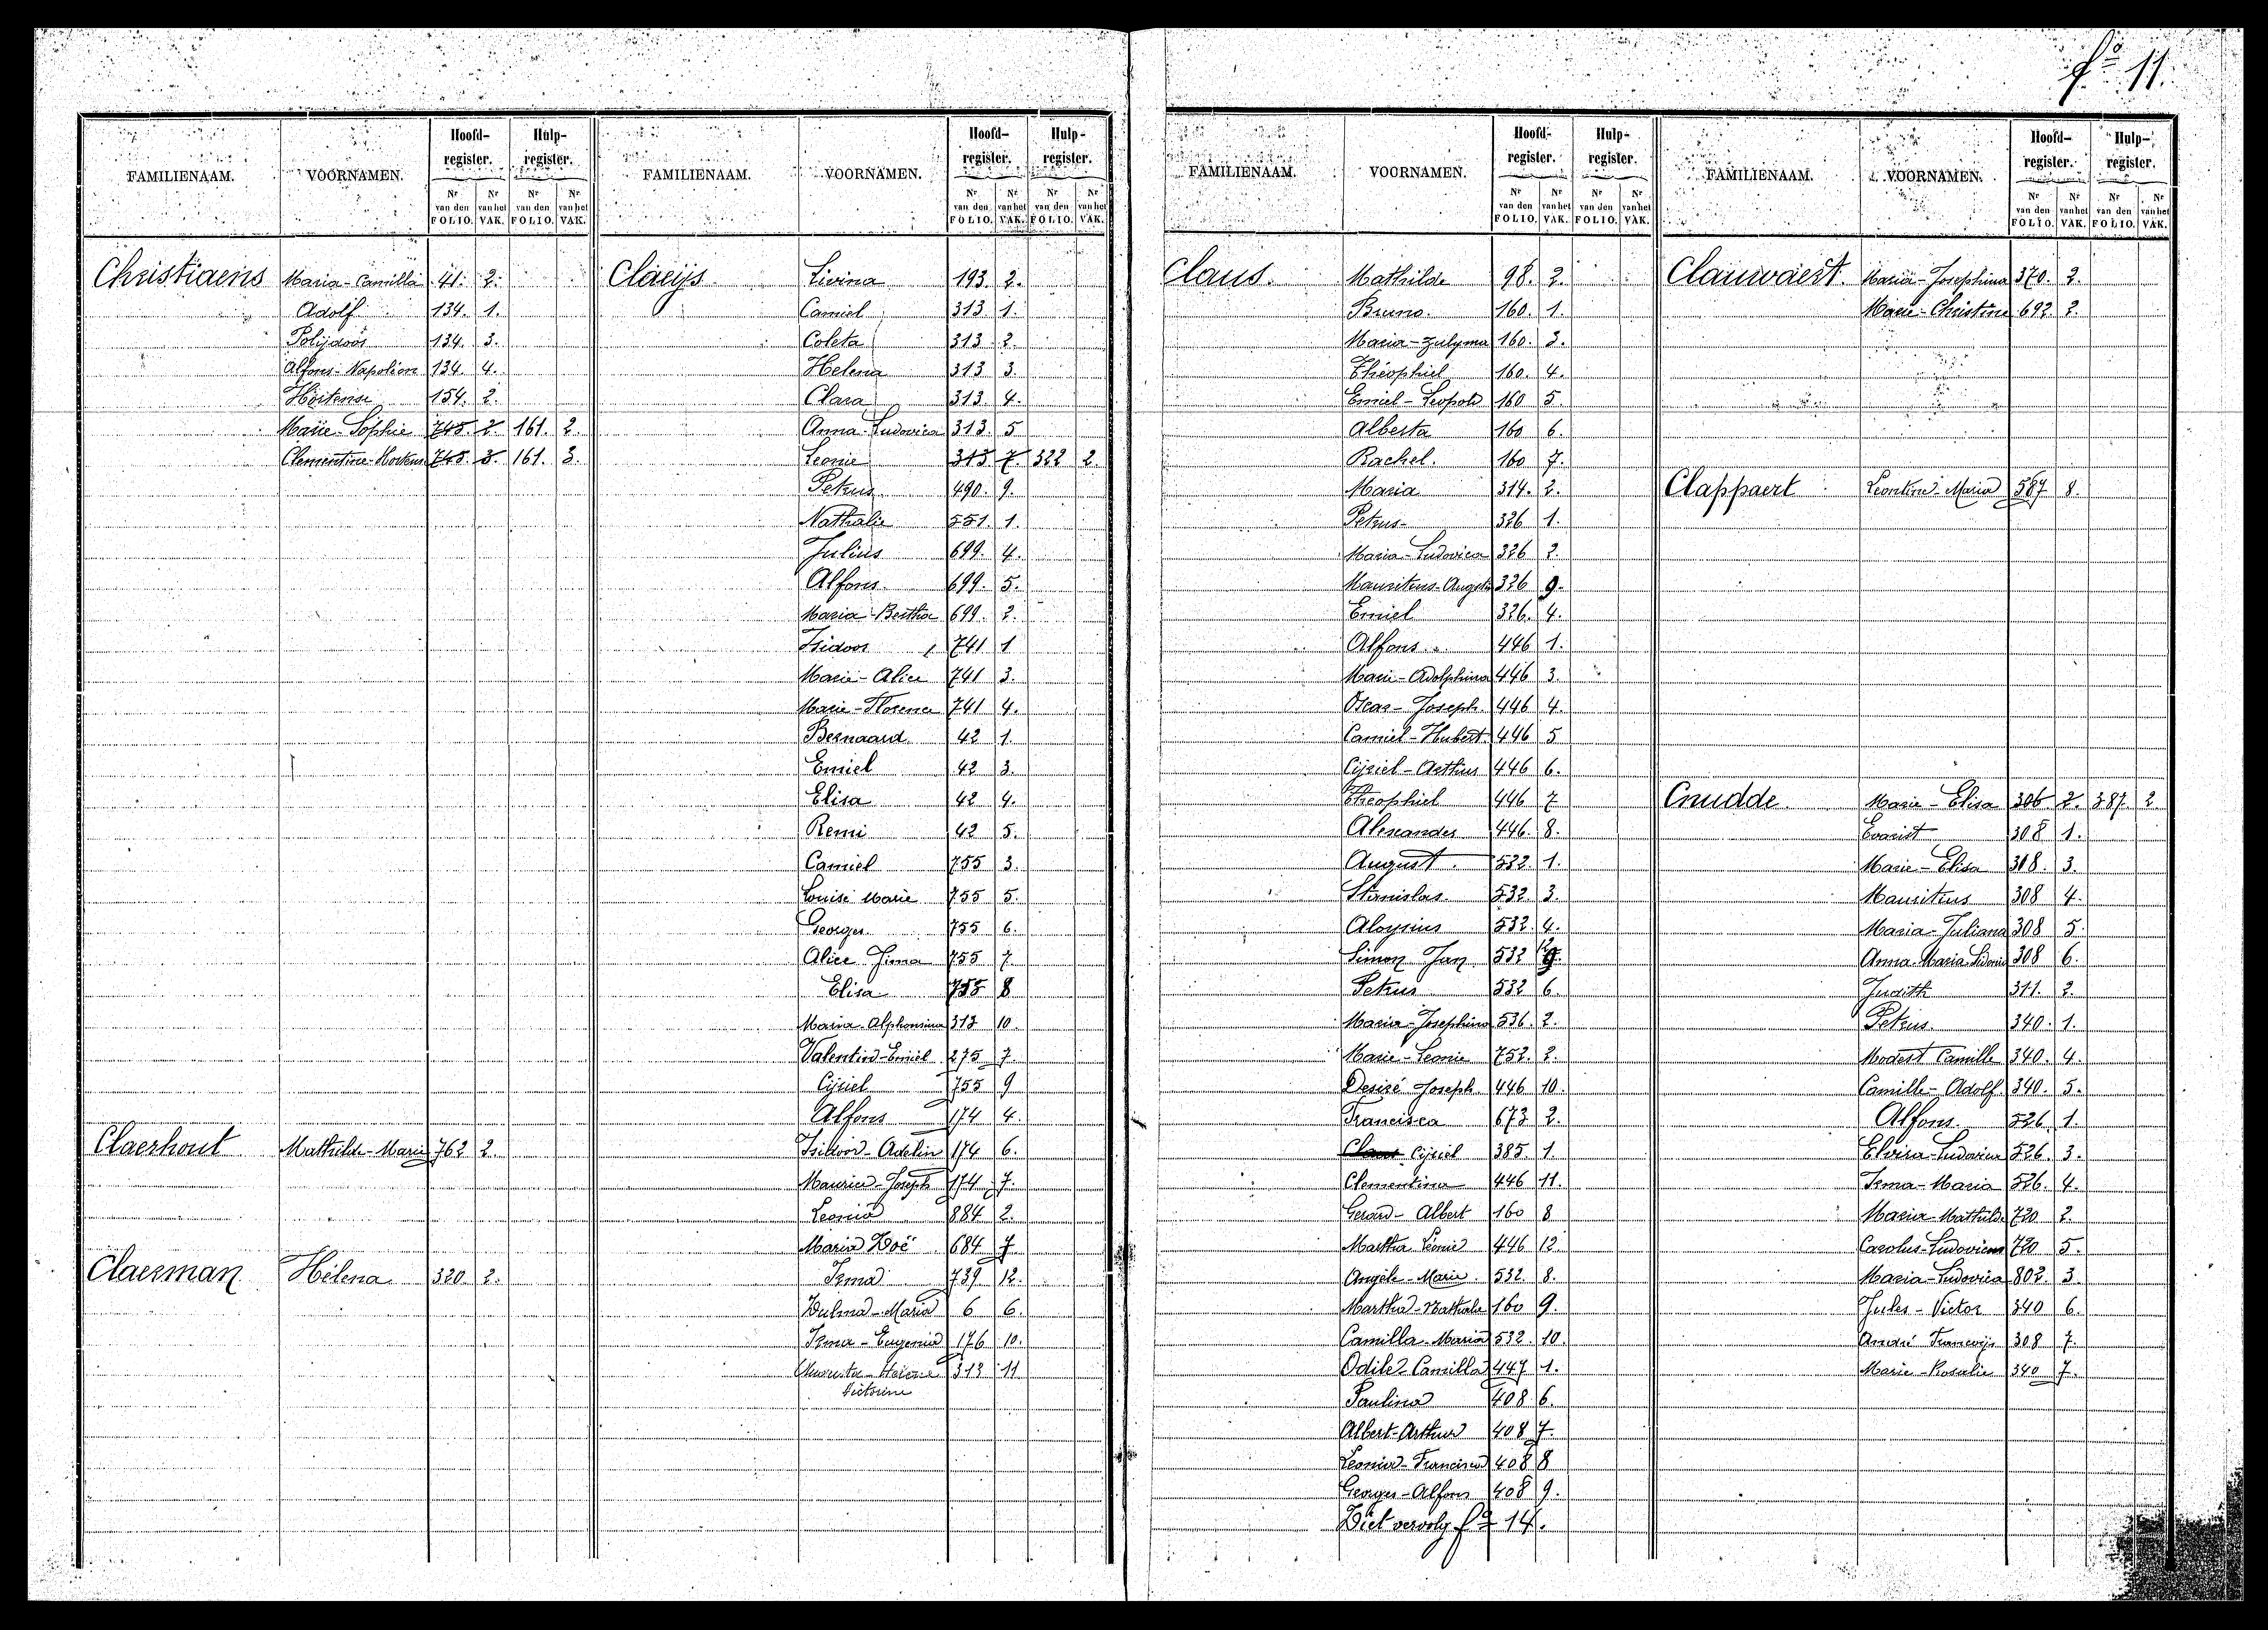 fº 11.
FAMILIENAAM. VOORNAMEN. Hoofd-register. Hulp-register.
Nr van den FOLIO. Nr van het VAK. Nr van den FOLIO. Nr van het VAK.
Christiaens Maria-Camilla 41. 2.
Adolf 134. 1.
Polijdoor 134. 3.
Alfons-Napoléon 134. 4.
Hortense 154. 2.
Marie-Sophie 745. 2. 161. 2.
Clementine-Hortens 745. 3. 161. 3.
Claerhout Mathilde-Marie 762 2.
Claerman Hélena 320. 2.
FAMILIENAAM. VOORNAMEN. Hoofd-register. Hulp-register.
Nr van den FOLIO. Nr van het VAK. Nr van den FOLIO. Nr van het VAK.
Claeijs Livina 193 2.
Camiel 313 1.
Coleta 313 2.
Helena 313 3.
Clara 313 4.
Anna-Ludovica 313. 5
Leonie 313 7. 322 2.
Petrus 490. 9.
Nathalie 551. 1.
Julius 699. 4.
Alfons 699. 5.
Maria-Bertha 699. 2.
Isidoor 741 1
Marie-Alice 741 3.
Marie-Florence 741 4.
Bernaard 42 1.
Emiel 42 3.
Elisa 42 4.
Remi 42 5.
Camiel 755 3.
Louise Marie 755 5.
Georges 755 6.
Alice Irma 755 7.
Elisa 755 8
Maria-Alphonsina 313 10.
Valentin-Emiel 275 7.
Cijriel 755 9
Alfons 174 4.
Isidoor-Adelin 174 6.
Maurice-Joseph 174 7.
Leonie 884 2.
Maria Zoë 684 7
Irma 739 12.
Zulma-Maria 6 6.
Irma-Eugenie 176 10.
313 11
Victorine
FAMILIENAAM. VOORNAMEN. Hoofd-register. Hulp-register.
Nr van den FOLIO. Nr van het VAK. Nr van den FOLIO. Nr van het VAK.
Claus. Mathilde 98. 2.
Bruno. 160. 1.
Maria-Zulyma 160. 3.
Théophiel 160. 4.
Emiel-Leopold 160 5.
Alberta 160 6.
Rachel. 160 7.
Maria 314. 2.
Petrus 326 1.
Maria-Ludovica 326 2.
Mauritus-August 326 9.
Emiel 326. 4.
Alfons 446 1.
Marie-Adolphina 446 3.
Oscar-Joseph 446 4.
Camiel-Hubert 446 5
Cijriel-Arthur 446 6.
Theophiel 446 7
Alexander 446. 8.
August 532. 1.
Stanislas 532 3.
Aloysius 532 4.
Simon Jan 532 9.
Petrus 532 6.
Maria-Josephina 536. 2.
Marie-Leonie 752. 2.
Desiré Joseph 446 10.
Francisca 673 2.
Claus Cijriel 385. 1.
Clementina 446 11.
Gerard-Albert 160 8
Martha Léonie 446 12
Angèle-Marie 532. 8.
Martha-Nathalie 160 9.
Camilla-Maria 532. 10.
Odile-Camilla 447 1.
Paulina 408 6.
Albert-Arthur 408 7
Leonie-Francisca 408 8
Georges-Alfons 408 9.
Ziet vervolg fº 14.
FAMILIENAAM. VOORNAMEN. Hoofd-register. Hulp-register.
Nr van den FOLIO. Nr van het VAK. Nr van den FOLIO. Nr van het VAK.
Clauwaert. Maria-Josephina 370. 2.
Marie-Christine 692 2.
Clappaert Leontine-Maria 587 8.
Cnudde. Marie-Elisa 306 2. 387 2.
Evarist 308 1.
Marie-Elisa 308. 3.
Mauritus 308 4.
Maria-Juliana 308 5.
Anna-Maria-Sidonie 308 6.
Judith 311. 2.
Petrus 340. 1.
Modest Camille 340. 4.
Camille-Adolf 340. 5.
Alfons. 526. 1.
Elvira-Ludovica 526. 3.
Irma-Maria 526. 4.
Maria-Mathilde 720 2.
Carolus-Ludovicus 720 5.
Maria-Ludovica 802. 3.
Jules-Victor 340 6.
André Francoijs 308 7.
Marie-Rosalie 340 7.